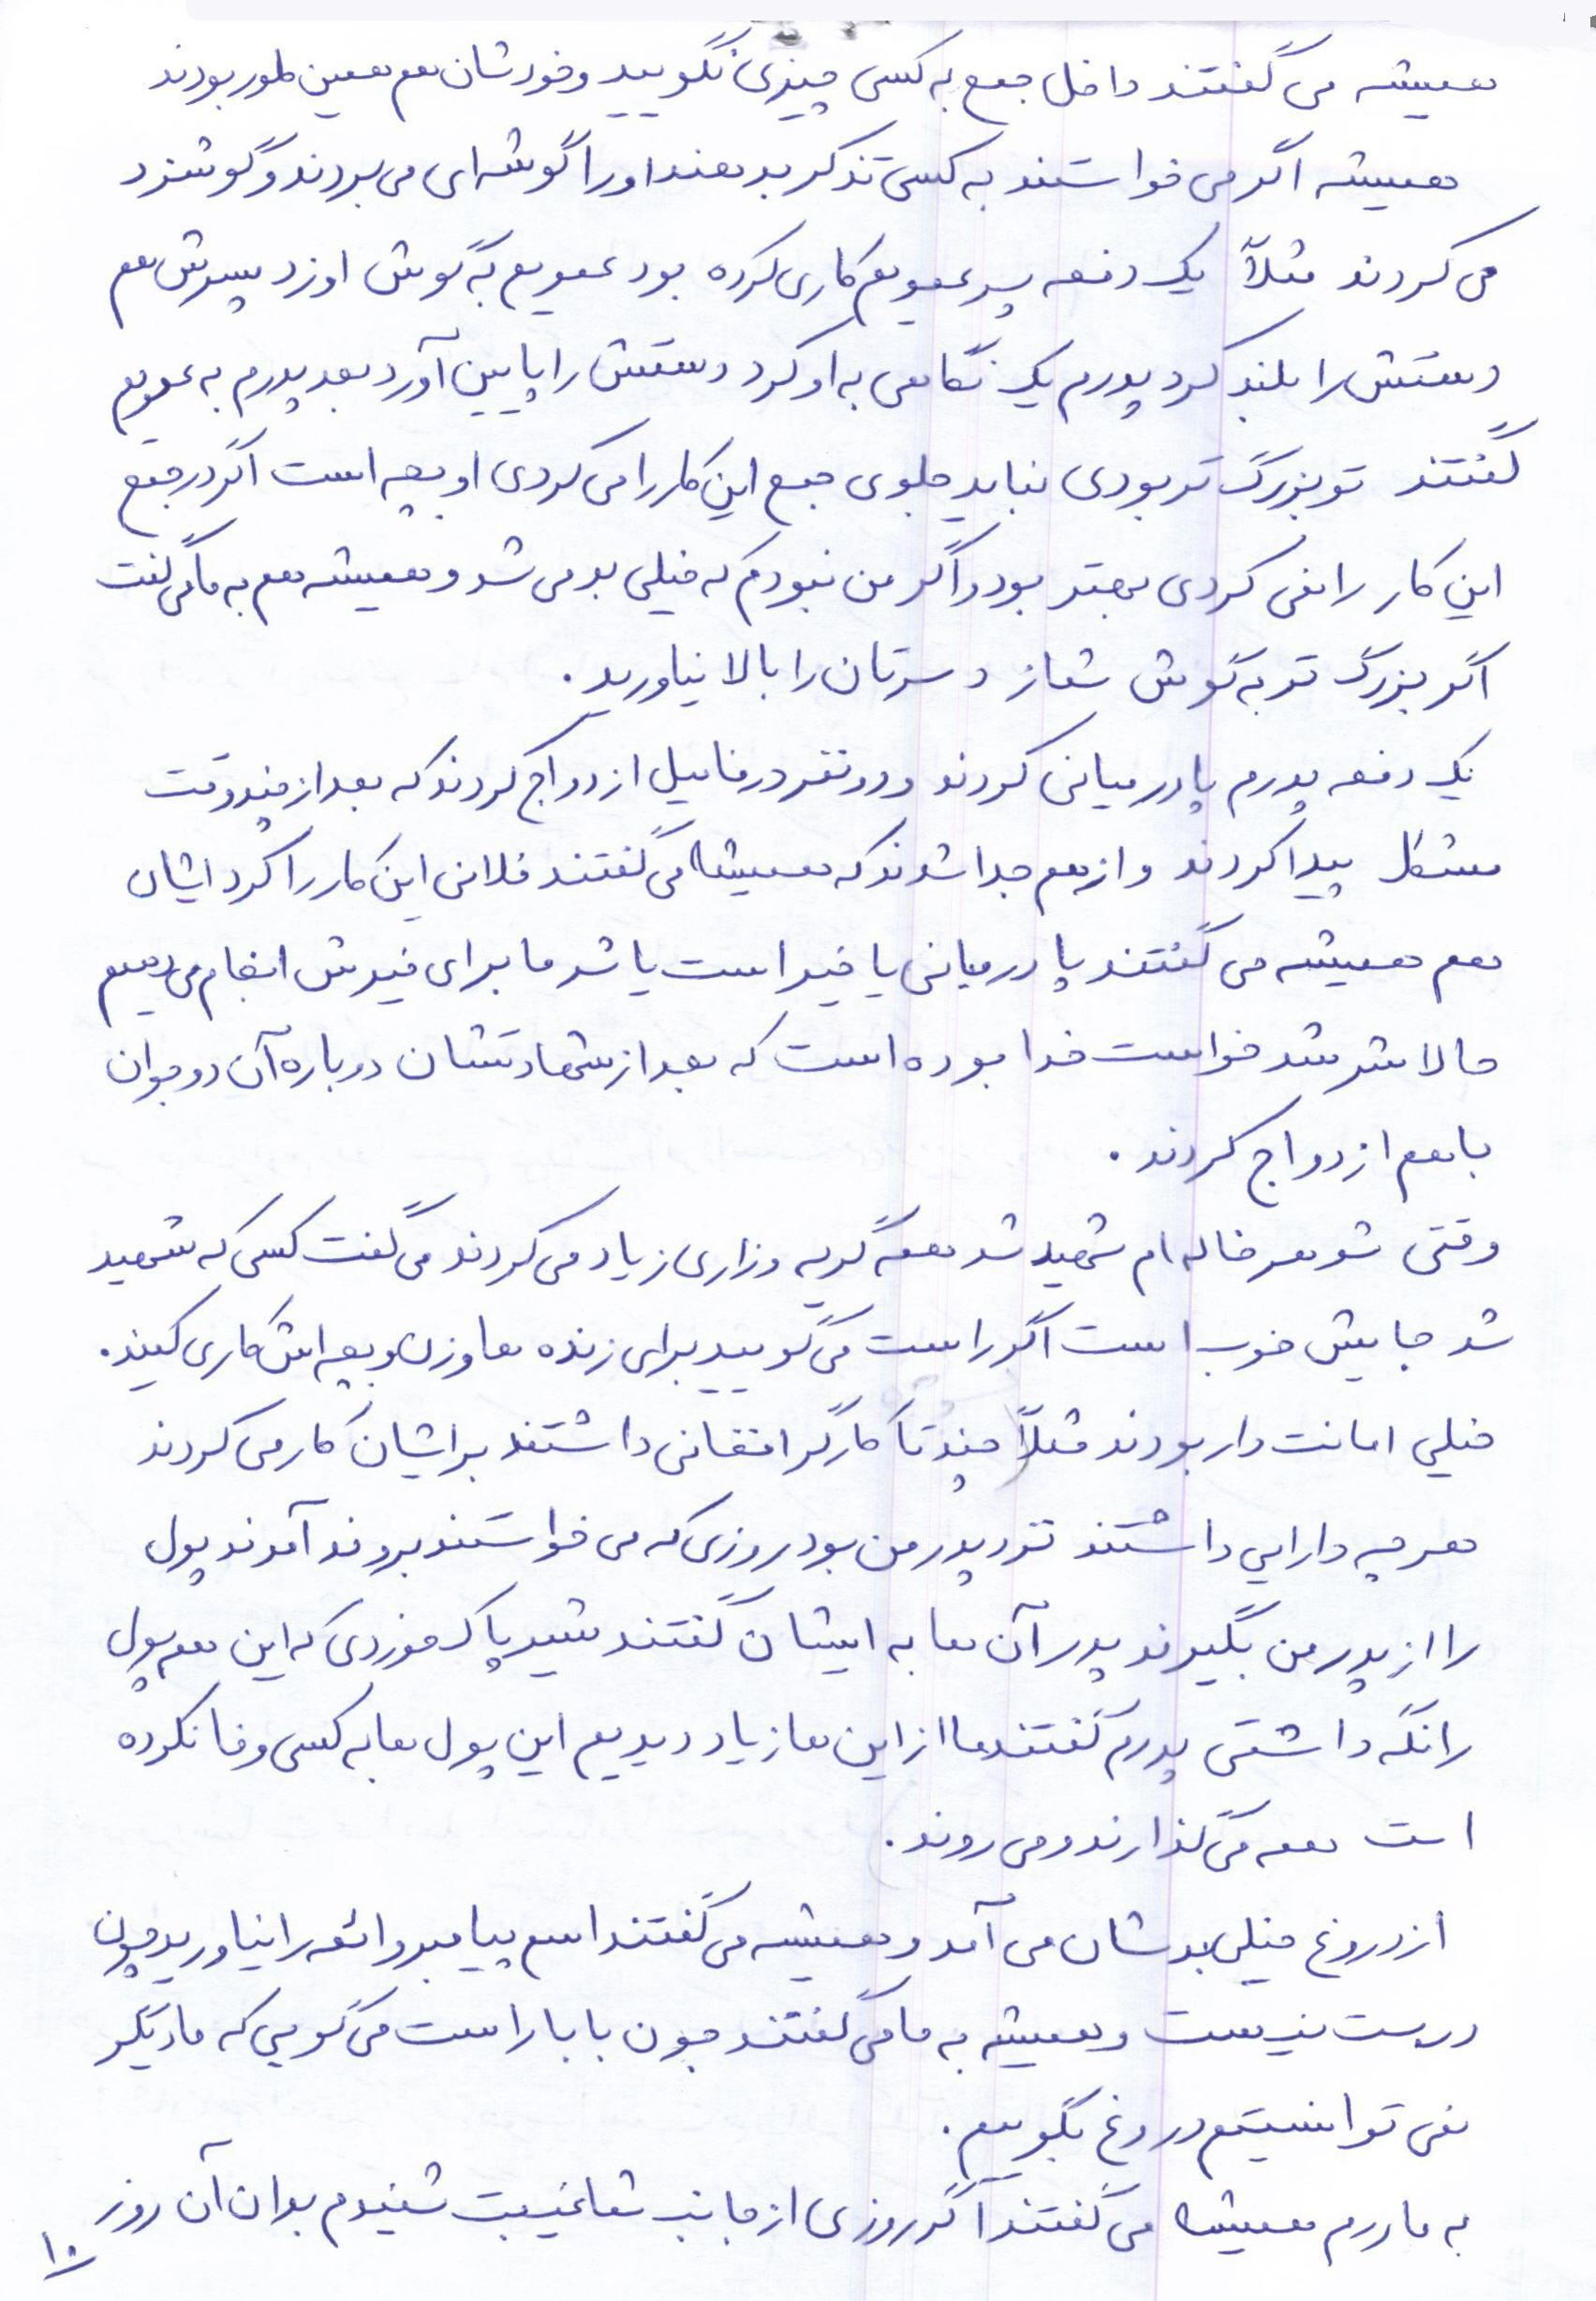 همیشه می گفتند داخل جمع به کسی چیزی نگویید و خودشان هم همین طور بودند
همیشه اگر می خواستند به کسی تذکر بدهند او را گوشه ای می بردند و گوشزد
می کردند مثلاً یک دفعه پسر عمویم کاری کرده بود عمویم به گوش او زد پسرش هم
دستش را بلند کرد پدرم یک نگاهی به او کرد دستش را پایین آورد بعد پدرم به عمویم
گفتند تو بزرگ تر بودی نباید جلوی جمع این کار را می کردی او بچه است اگر در جمع
این کار را نمی کردی بهتر بود و اگر من نبودم که خیلی بد می شد و همیشه هم به ما می گفت
اگر بزرگ تر به گوش شما زد سرتان را بالا نیاورید.
یک دفعه پدرم پادرمیانی کردند و دو نفر در فامیل ازدواج کردند که بعد از چند وقت
مشکل پیدا کردند و از هم جدا شدند که همیشه می گفتند فلانی این کار را کرد ایشان
هم همیشه می گفتند پادرمیانی یا خیر است یا شر ما برای خیرش انجام می دهیم
حالا شر شد خواست خدا بوده است که بعد از شهادتشان دوباره آن دو جوان
با هم ازدواج کردند.
وقتی شوهر خاله ام شهید شد همه گریه و زاری زیاد می کردند می گفت کسی که شهید
شد جایش خوب است اگر راست می گویید برای زنده ها و زن و بچه اش کاری کنید.
خیلی امانت دار بودند مثلاً چند تا کارگر افغانی داشتند برایشان کار می کردند
هر چه دارایی داشتند نزد پدر من بود روزی که می خواستند بروند آمدند پول
را از پدر من بگیرند پدر آن ها به ایشان گفتند شیر پاک خوردی که این همه پول
را نگه داشتی پدرم گفتند ما از این ها زیاد دیدیم این پول ها به کسی وفا نکرده
است همه می گذارند و می روند.
از دروغ خیلی بدشان می آمد و همیشه می گفتند اسم پیامبر و ائمه را نیاورید چون
درست نیست و همیشه به ما می گفتند جون بابا راست می گویی که ما دیگر
نمی توانستیم دروغ بگوییم.
به مادرم همیشه می گفتند اگر روزی از جانب شما غیبت شنیدم بدان آن روز
۱۰